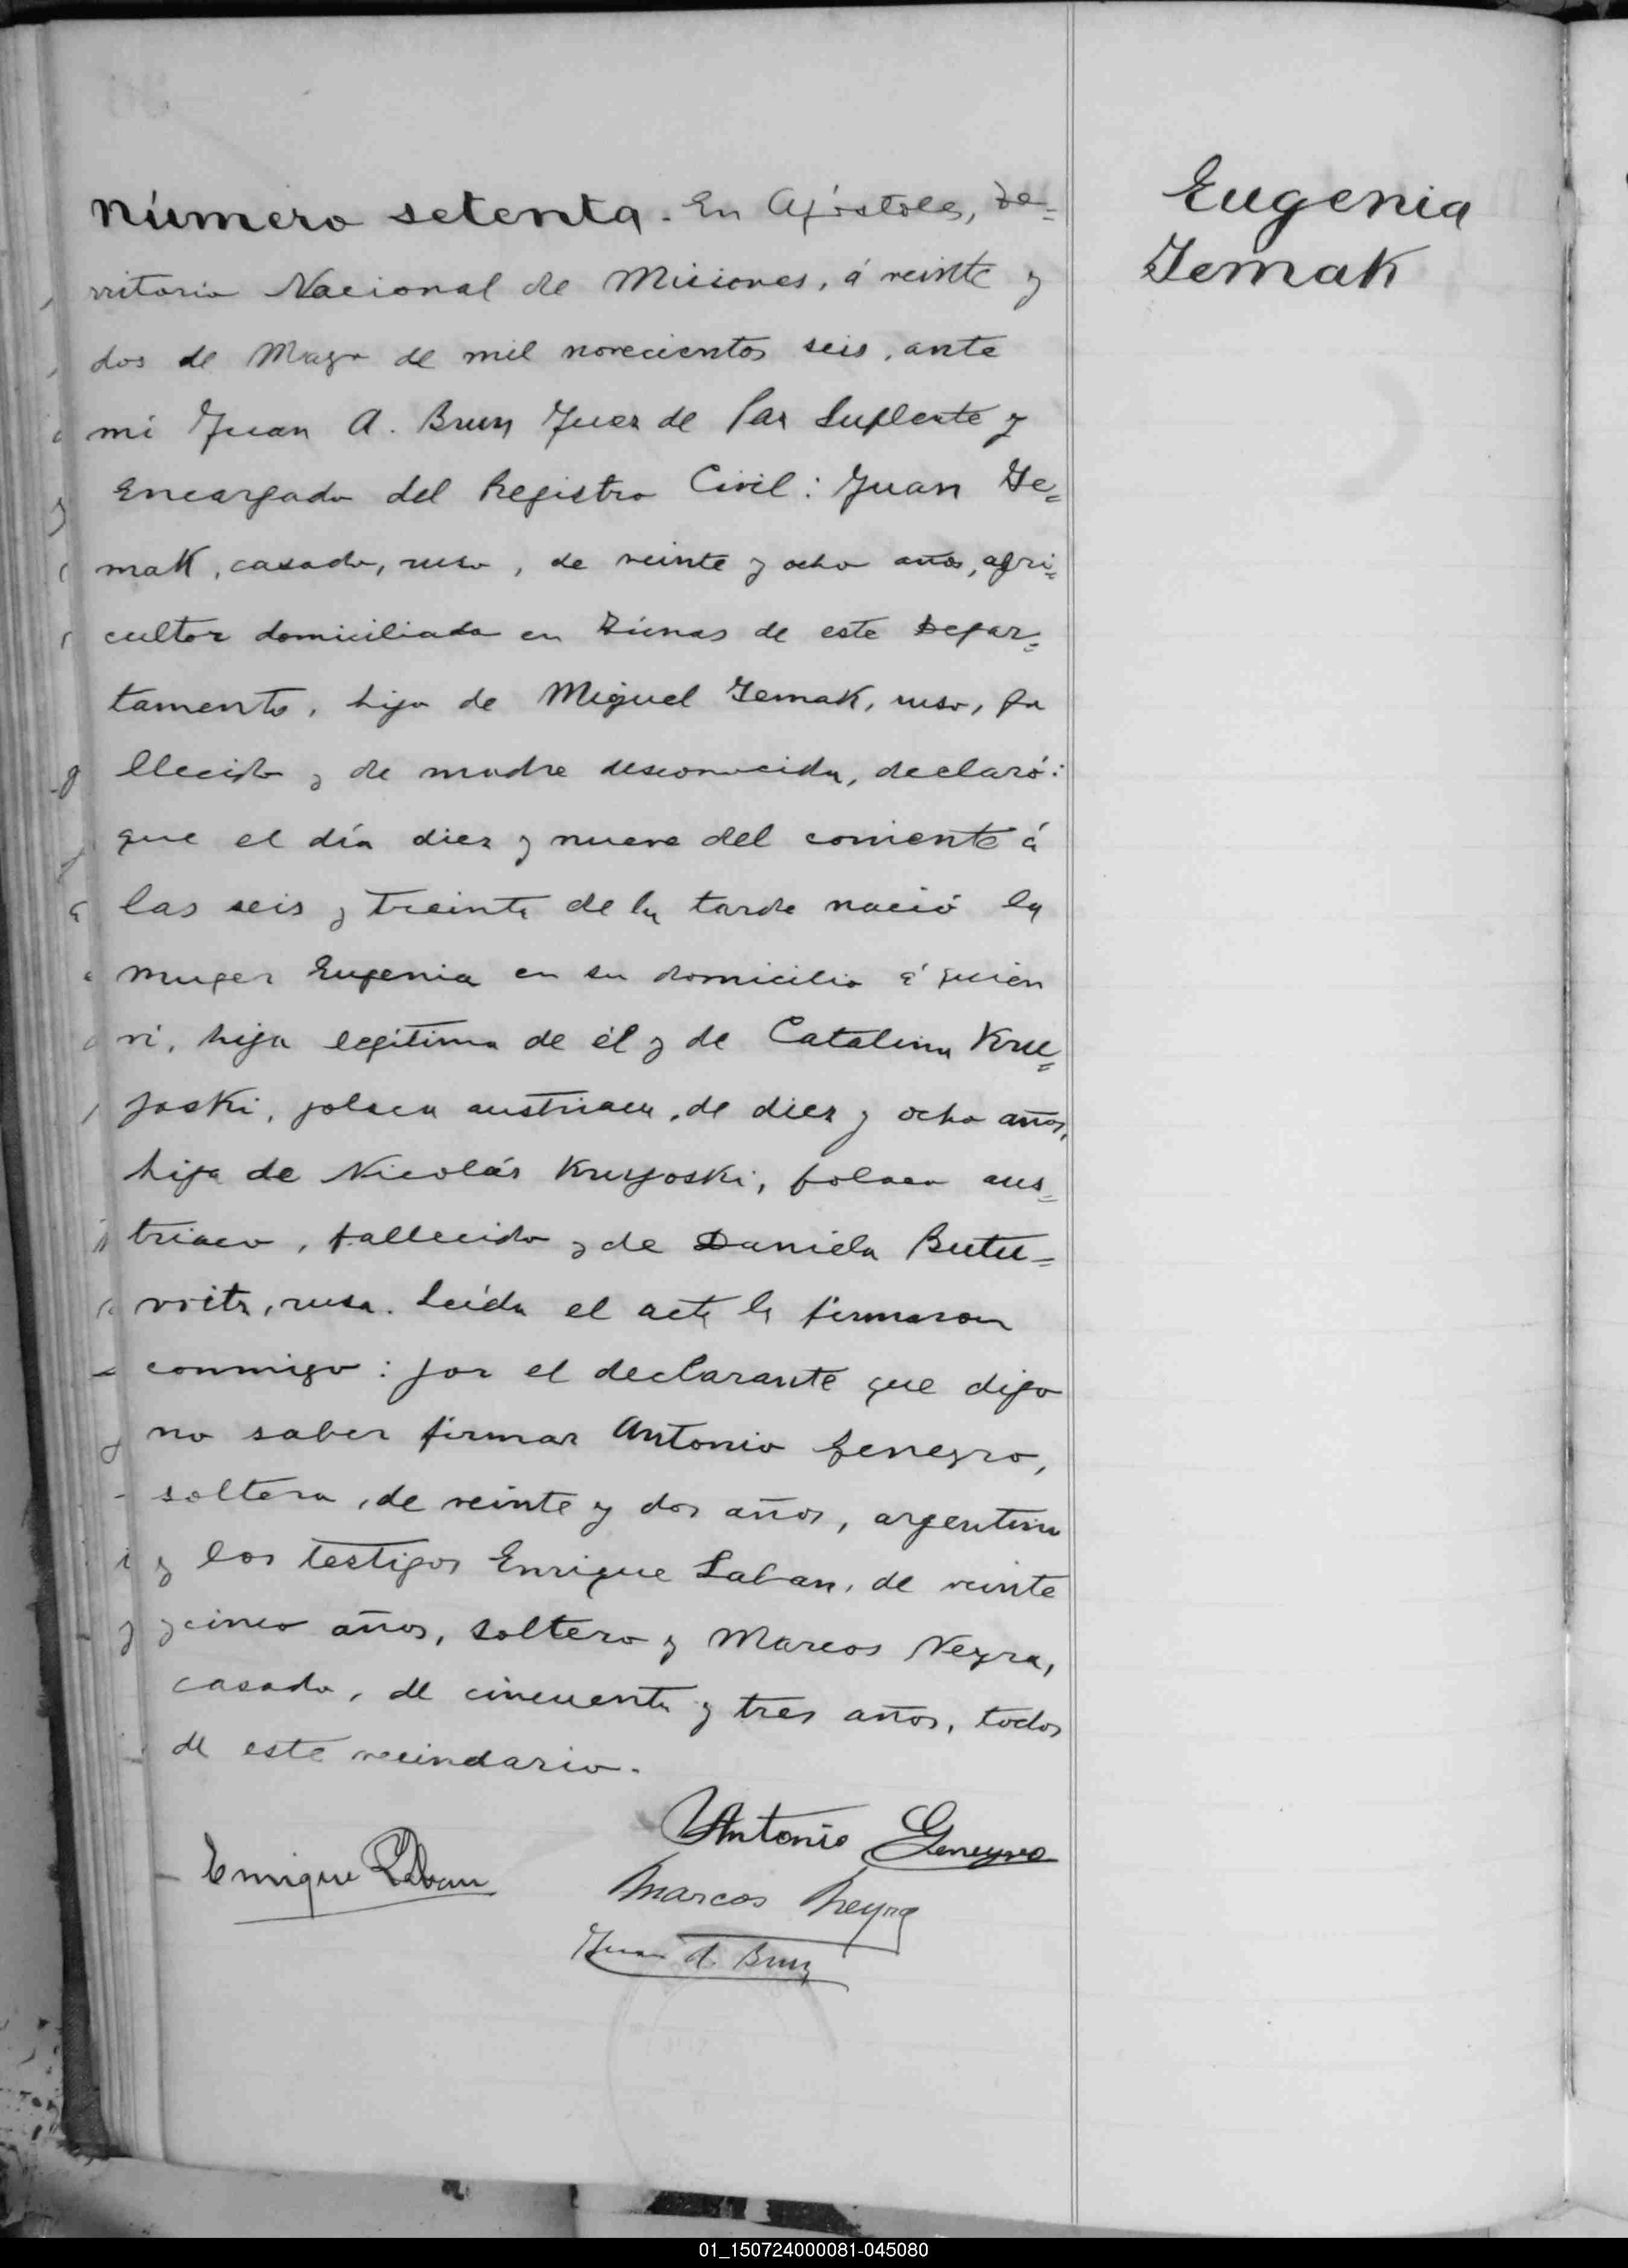 Número setenta. En Apóstoles, Te=
rritorio Nacional de Misiones, á veinte y
dos de Mayo de mil novecientos seis, ante
mi Juan A. Brun Juez de Paz Suplente y
Encargado del Registro Civil: Juan Ze=
mak, casado, ruso, de veinte y ocho años, agri=
cultor domiciliado en de este Depar=
tamento, hijo de Miguel Zemak, ruso, fa
llecido y de madre desconocida, declaró:
que el día diez y nueve del corriente á
las seis y treinta de la tarde nació la
muger Eugenia en su domicilio á quien
ví, hija legítima de él y de Catalina Kru=
joski, polaca austriaca, de diez y ocho años,
hija de Nicolás Krujoski, polaco aus=
triaco, fallecido y de Daniela Butu=
rritz, rusa. Leída el acta la firmaron
conmigo: por el declarante que dijo
no saber firmar Antonio Geneyro,
soltero, de veinte y dos años, argentino
y los testigos Enrique Laban, de veinte
y cinco años, soltero y Marcos Neyra,
casado, de cincuenta y tres años, todos
de este vecindario.
Antonio Geneyro
Enrique Laban
Marcos Neyra
Juan A. Brun
Eugenia
Zemak
01_150724000081-045080